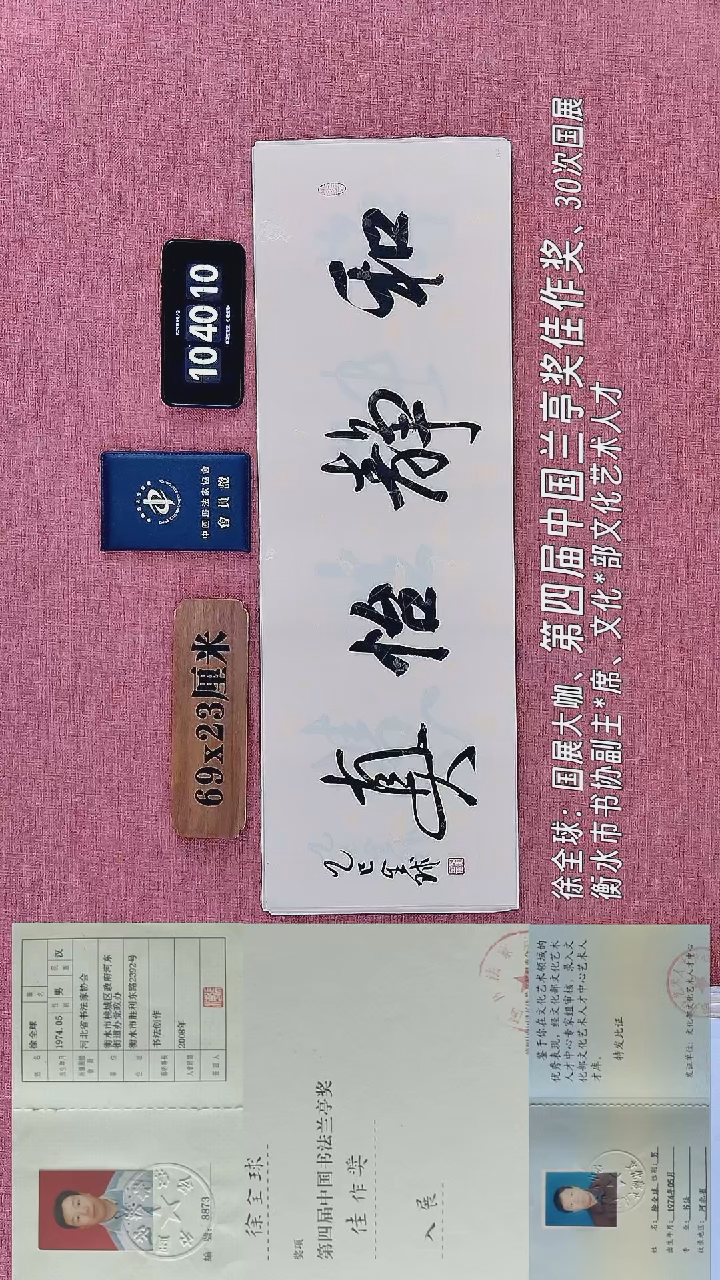 10 40 10
中国书法家协会
會員證
69x23厘米
和静怡真
乙巳全球
徐全球：国展大咖、第四届中国兰亭奖佳作奖、30次国展
衡水市书协副主*席、文化*部文化艺术人才
姓名 徐全球
1974.05 男 汉
河北省书法家协会
衡水市桃城区政府河东
街道办党政办
衡水市胜利东路2292号
书法创作
2008年
编号：8873
徐全球
奖项
第四届中国书法兰亭奖
佳作奖
入展
鉴于你在文化艺术领域的
优秀表现，经文化部文化艺术
人才中心专家组审核，录入文
化部文化艺术人才中心艺术人
才库。
特发此证
发证单位：文化部文化艺术人才中心
姓名：徐全球 性别：男
出生年月：1974年05月
专业：书法